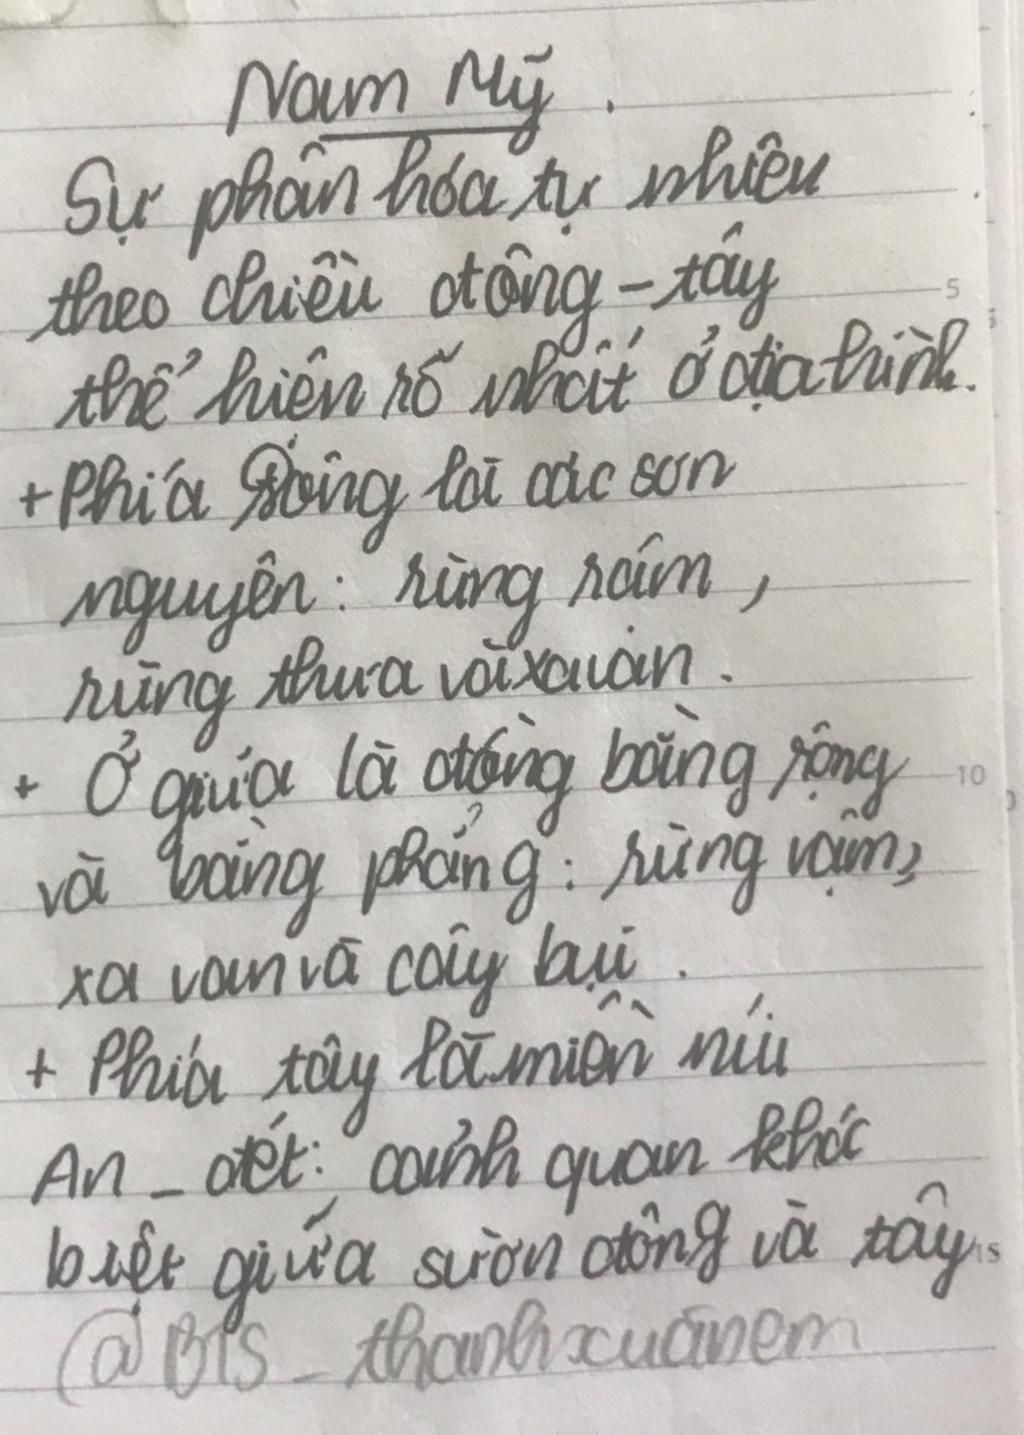 Nam Mỹ.
Sự phân hóa tự nhiên
theo chiều đông - tây
thể hiện rõ nhất ở địa hình.
+ Phía Đông là các sơn
nguyên: rừng rậm,
rừng thưa và xavan.
+ Ở giữa là đồng bằng rộng
và bằng phẳng: rừng rậm,
xa van và cây bụi.
+ Phía tây là miền núi
An - đét: cảnh quan khác
biệt giữa sườn đông và tây
@BTS_thanhxuânem
5
10
15